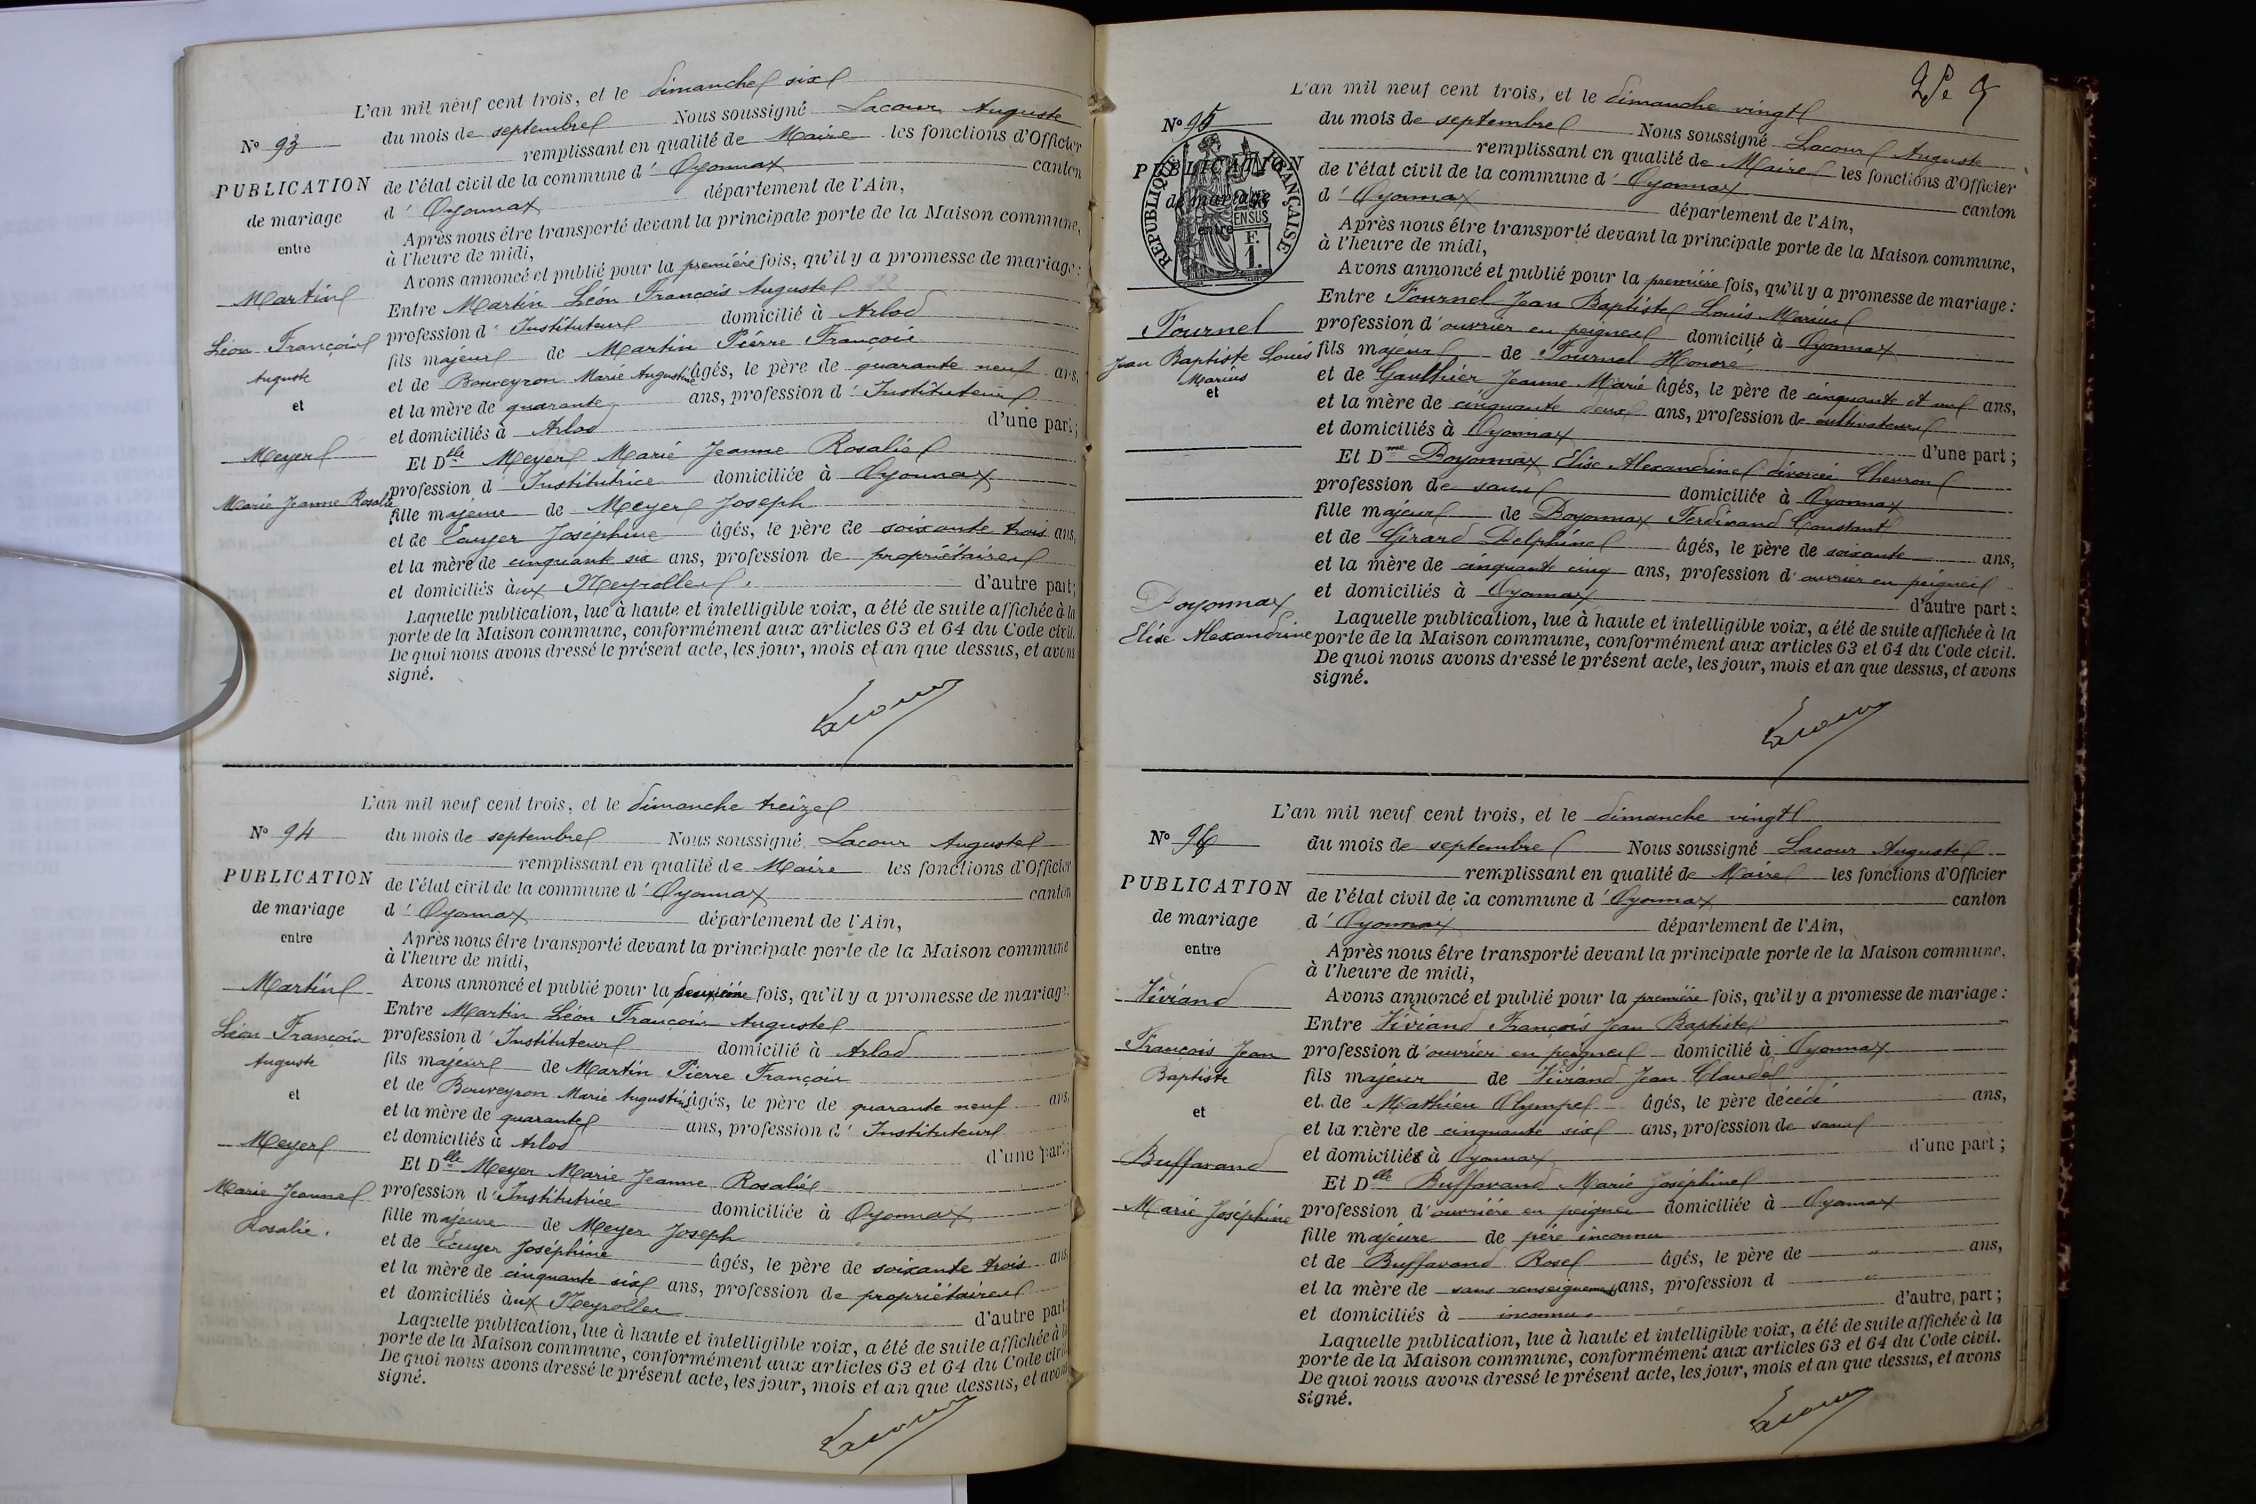 L'an mil neuf cent trois, et le dimanche six
N° 93
du mois de septembre Nous soussigné Lacour Auguste
remplissant en qualité de Maire les fonctions d'Officier
PUBLICATION
de mariage
entre
de l'état civil de la commune d' Oyonnax canton
d' Oyonnax département de l'Ain,
Après nous être transporté devant la principale porte de la Maison commune,
à l'heure de midi,
Avons annoncé et publié pour la première fois, qu'il y a promesse de mariage :
Martin
Léon François
Auguste
et
Meyer
Marie Jeanne Rosalie
Entre Martin Léon François Auguste
profession d' Instituteur domicilié à Arlod
fils majeur de Martin Pierre François
et de Bouveyron Marie Augustine âgés, le père de quarante neuf ans,
et la mère de quarante ans, profession d' Instituteur
et domiciliés à Arlod d'une part ;
Et Dlle Meyer Marie Jeanne Rosalie
profession d' Institutrice domiciliée à Oyonnax
fille majeure de Meyer Joseph
et de Ecuyer Joséphine âgés, le père de soixante trois ans,
et la mère de cinquante six ans, profession de propriétaires
et domiciliés aux Neyrolles. d'autre part;
Laquelle publication, lue à haute et intelligible voix, a été de suite affichée à la
porte de la Maison commune, conformément aux articles 63 et 64 du Code civil.
De quoi nous avons dressé le présent acte, les jour, mois et an que dessus, et avons
signé.
Lacour
L'an mil neuf cent trois, et le dimanche treize
N° 94
du mois de septembre Nous soussigné Lacour Auguste
remplissant en qualité de Maire les fonctions d'Officier
PUBLICATION
de mariage
entre
de l'état civil de la commune d' Oyonnax canton
d' Oyonnax département de l'Ain,
Après nous être transporté devant la principale porte de la Maison commune
à l'heure de midi,
Avons annoncé et publié pour la deuxième fois, qu'il y a promesse de mariage
Martin
Léon François
Auguste
et
Meyer
Marie Jeanne
Rosalie.
Entre Martin Léon François Auguste
profession d' Instituteur domicilié à Arlod
fils majeur de Martin Pierre François
et de Bouveyron Marie Augustine âgés, le père de quarante neuf ans,
et la mère de quarante ans, profession d' Instituteur
et domiciliés à Arlod d'une part;
Et Dlle Meyer Marie Jeanne Rosalie
profession d' Institutrice domiciliée à Oyonnax
fille majeure de Meyer Joseph
et de Ecuyer Joséphine âgés, le père de soixante trois ans,
et la mère de cinquante six ans, profession de propriétaires
et domiciliés aux Neyrolles d'autre part
Laquelle publication, lue à haute et intelligible voix, a été de suite affichée à la
porte de la Maison commune, conformément aux articles 63 et 64 du Code civil
De quoi nous avons dressé le présent acte, les jour, mois et an que dessus, et avons
signé.
Lacour
L'an mil neuf cent trois, et le dimanche vingt
N° 95
du mois de septembre Nous soussigné Lacour Auguste
remplissant en qualité de Maire les fonctions d'Officier
PUBLICATION
de mariage
entre
RÉPUBLIQUE FRANÇAISE
EN SUS
de l'état civil de la commune d' Oyonnax canton
d' Oyonnax département de l'Ain,
Après nous être transporté devant la principale porte de la Maison commune,
à l'heure de midi,
Avons annoncé et publié pour la première fois, qu'il y a promesse de mariage :
Fournel
Jean Baptiste Louis
Marius
et
Doyonnax
Elise Alexandrine
Entre Fournel Jean Baptiste Louis Marius
profession d'ouvrier en peignes domicilié à Oyonnax
fils majeur de Fournel Honoré
et de Gaulthier Jeanne Marie âgés, le père de cinquante et un ans,
et la mère de cinquante deux ans, profession de cultivateurs
et domiciliés à Oyonnax d'une part ;
Et Dme Doyonnax Elise Alexandrine divorcée Chevron
profession de sans domiciliée à Oyonnax
fille majeur de Doyonnax Ferdinand Constant
et de Girard Delphine âgés, le père de soixante ans,
et la mère de cinquante cinq ans, profession d'ouvrier en peignes
et domiciliés à Oyonnax d'autre part :
Laquelle publication, lue à haute et intelligible voix, a été de suite affichée à la
porte de la Maison commune, conformément aux articles 63 et 64 du Code civil.
De quoi nous avons dressé le présent acte, les jour, mois et an que dessus, et avons
signé.
Lacour
L'an mil neuf cent trois, et le dimanche vingt
N° 96
du mois de septembre Nous soussigné Lacour Auguste
remplissant en qualité de Maire les fonctions d'Officier
PUBLICATION
de mariage
entre
de l'état civil de la commune d' Oyonnax canton
d' Oyonnax département de l'Ain,
Après nous être transporté devant la principale porte de la Maison commune,
à l'heure de midi,
Avons annoncé et publié pour la première fois, qu'il y a promesse de mariage :
Viviand
François Jean
Baptiste
et
Buffavand
Marie Joséphine
Entre Viviand François Jean Baptiste
profession d'ouvrier en peignes domicilié à Oyonnax
fils majeur de Viviand Jean Claude
et de Mathieu Olympe âgés, le père décédé ans,
et la mère de cinquante six ans, profession de sans
et domiciliés à Oyonnax d'une part ;
Et Dlle Buffavand Marie Joséphine
profession d'ouvrière en peignes domiciliée à Oyonnax
fille majeure de père inconnu
et de Buffavand Rose âgés, le père de " ans,
et la mère de sans renseignements ans, profession d "
et domiciliés à inconnus d'autre part ;
Laquelle publication, lue à haute et intelligible voix, a été de suite affichée à la
porte de la Maison commune, conformément aux articles 63 et 64 du Code civil.
De quoi nous avons dressé le présent acte, les jour, mois et an que dessus, et avons
signé.
Lacour